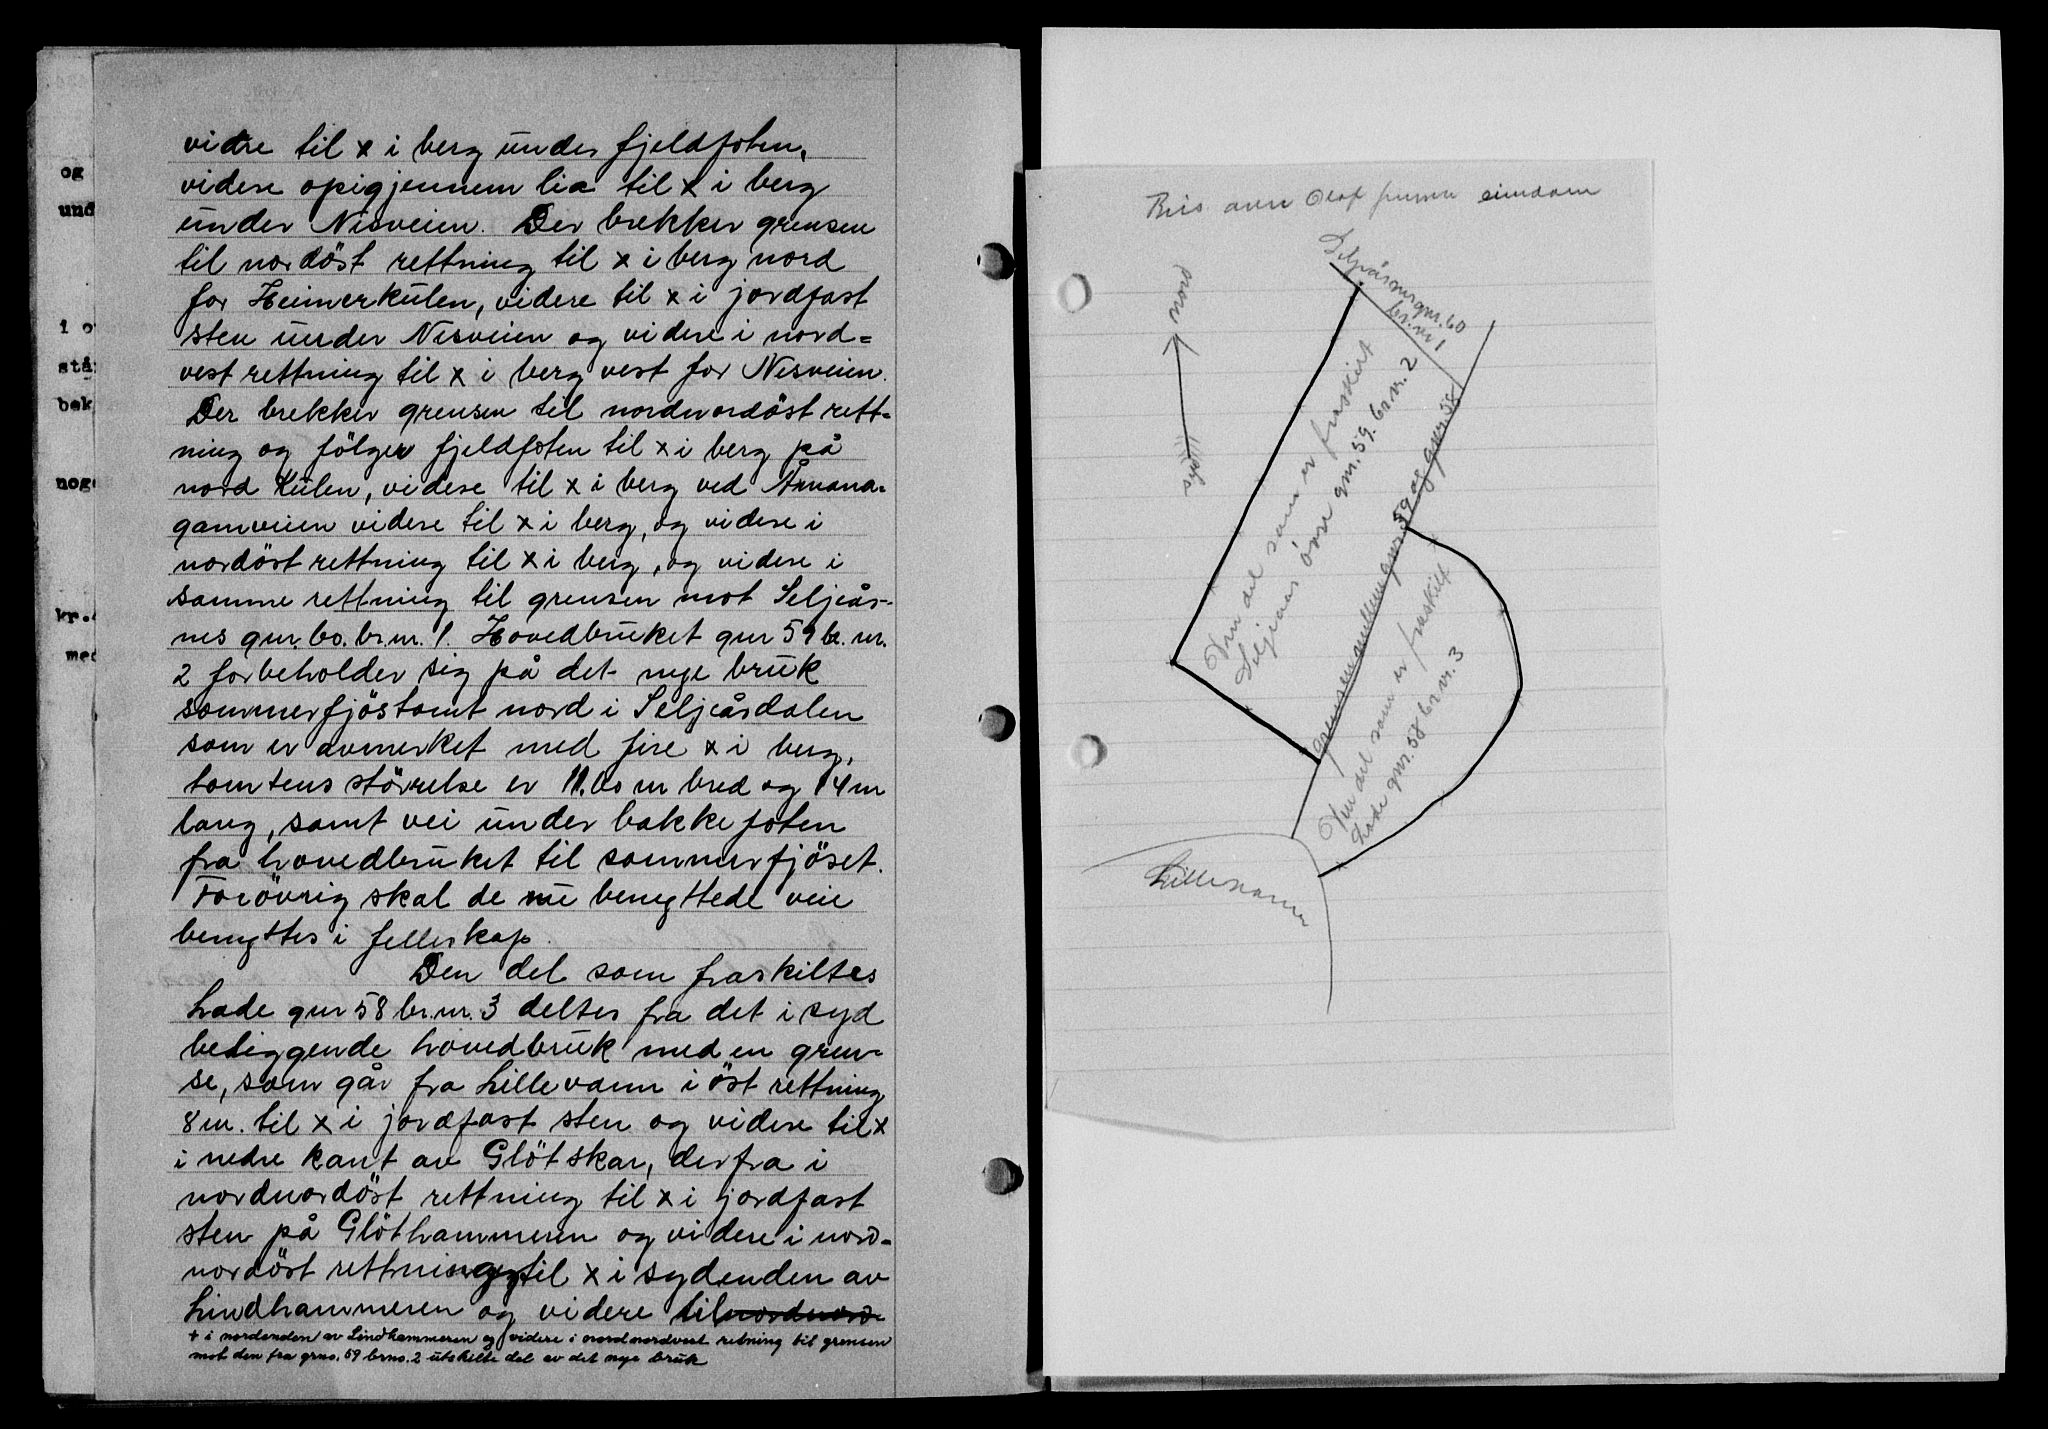 og
und
1 o
stå
bek
nog
kr.
med
vidre til x i berg under fjeldfoten,
videre opigjennem lia til x i berg
under Nisveien. Der brekker grensen
til nordöst rettning til x i berg nord
for Heimerkulen, videre til x i jordfast
sten under Nisveien og videre i nord=
vest rettning til x i berg vest for Nisveien.
Der brekker grensen til nordnordöst rett=
ning og fölger fjeldfoten til x i berg på
nord Kulen, videre til x i berg ved
gamveien videre til x i berg, og videre i
nordöst rettning til x i berg, og videre i
samme rettning til grensen mot Seljeås-
nes gnr. 60. br.nr. 1. Hovedbruket gnr 59 br. nr.
2 forbeholder sig på det nye bruk
sommerfjöstomt nord i Seljeårdalen
som er avmerket med fire x i berg,
tomtens störrelse er 11.00 m bred og 14 m
lang, samt vei under bakkefoten
fra hovedbruket til sommerfjöset.
Forövrig skal de nu benyttede veie
benyttes i felleskap.
Den del som fraskiltes
Lade gnr 58 br.nr. 3 deltes fra det i syd
beliggende hovedbruk med en gren=
se, som går fra Lillevann i öst rettning
8 m. til x i jordfast sten og videre til x
i nedre kant av Glötskar, derfra i
nordnordöst rettning til x i jordfast
sten på Glöthammeren og videre i nord=
nordöst rettning til x i sydenden av
Lindhammeren og videre til nordnord
+ i nordenden av Lindhammeren og videre i nordnordvest retning til grensen
mot den fra grno. 59 brno. 2 utskilte del av det nye bruk
Ris over Olaf eiendom
nord
syd
gnr. 60
br. nr 1
Den del som er fraskilt
Seljeaas övre gnr. 59. br. nr. 2
grensen mellem gnr. 59 og gnr. 58
Den del som er fraskilt
Lade gnr. 58 br. nr. 3
Lillevann